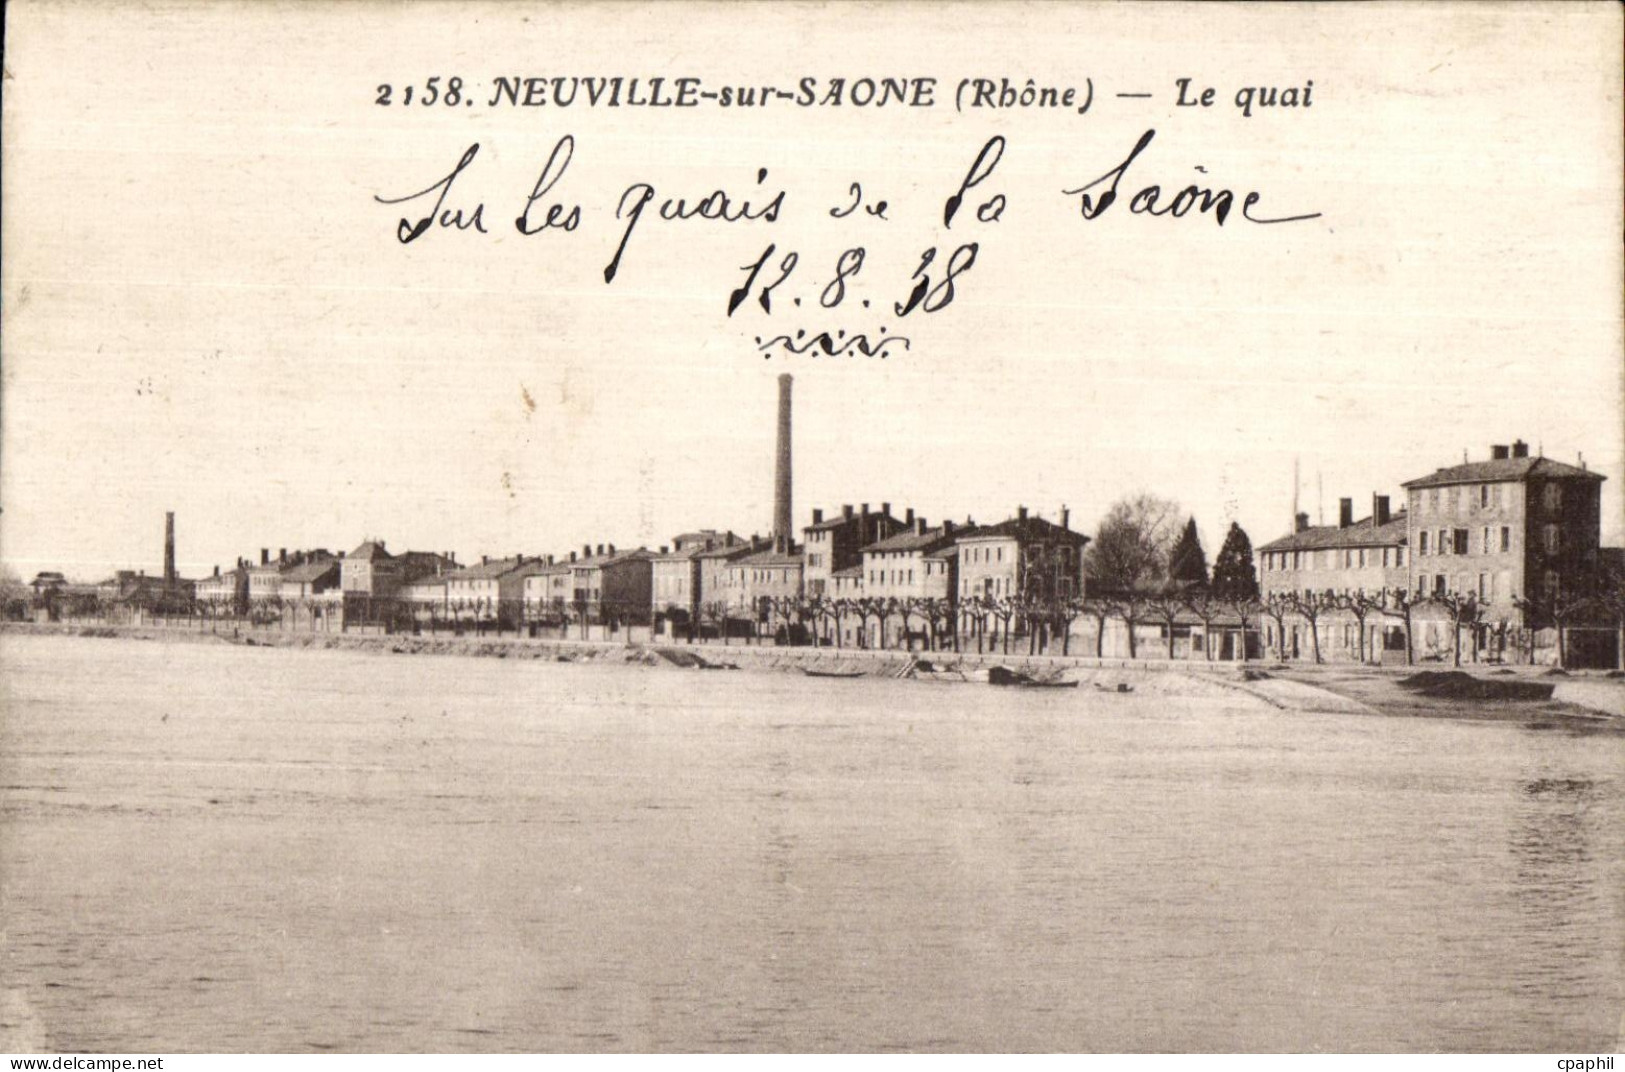 2158. NEUVILLE-sur-SAONE (Rhône) — Le quai
Sur les quais de la Saône
12.8.38
www.delcampe.net
cpaphil